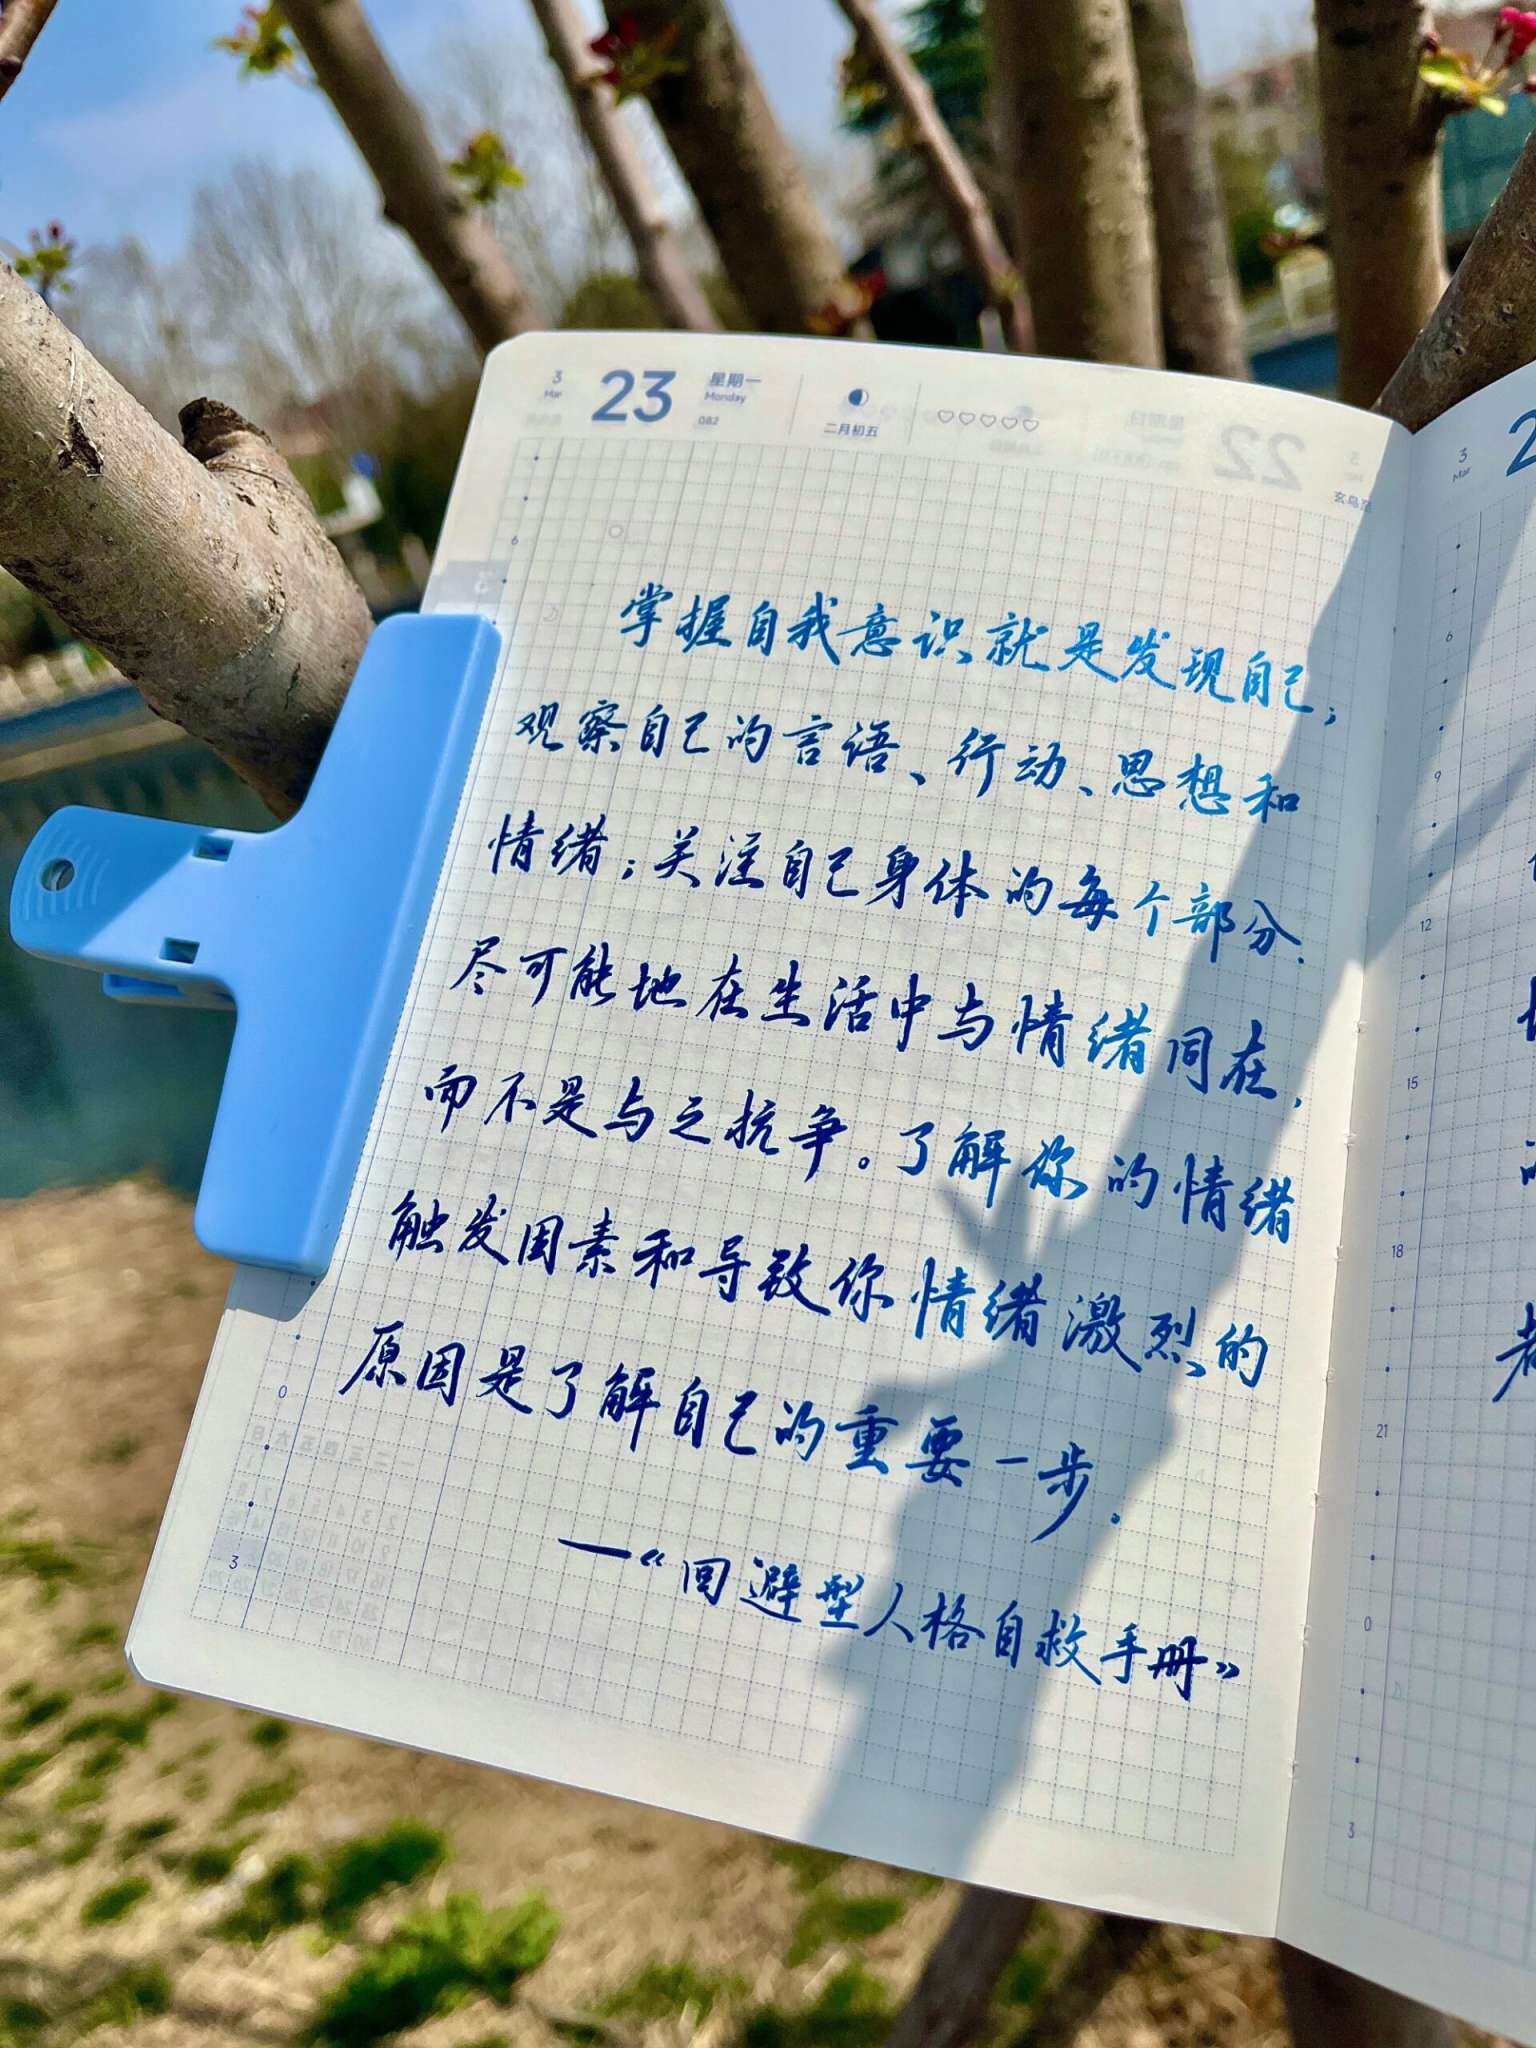 3 Mar 23 星期一 Monday 082 二月初五
6
掌握自我意识就是发现自己;
观察自己的言语、行动、思想和
情绪;关注自己身体的每个部分.
尽可能地在生活中与情绪同在,
而不是与之抗争。了解你的情绪
触发因素和导致你情绪激烈的
原因是了解自己的重要一步.
0
3
—《回避型人格自救手册》
3 Mar 2
6
9
12
15
18
21
0
3